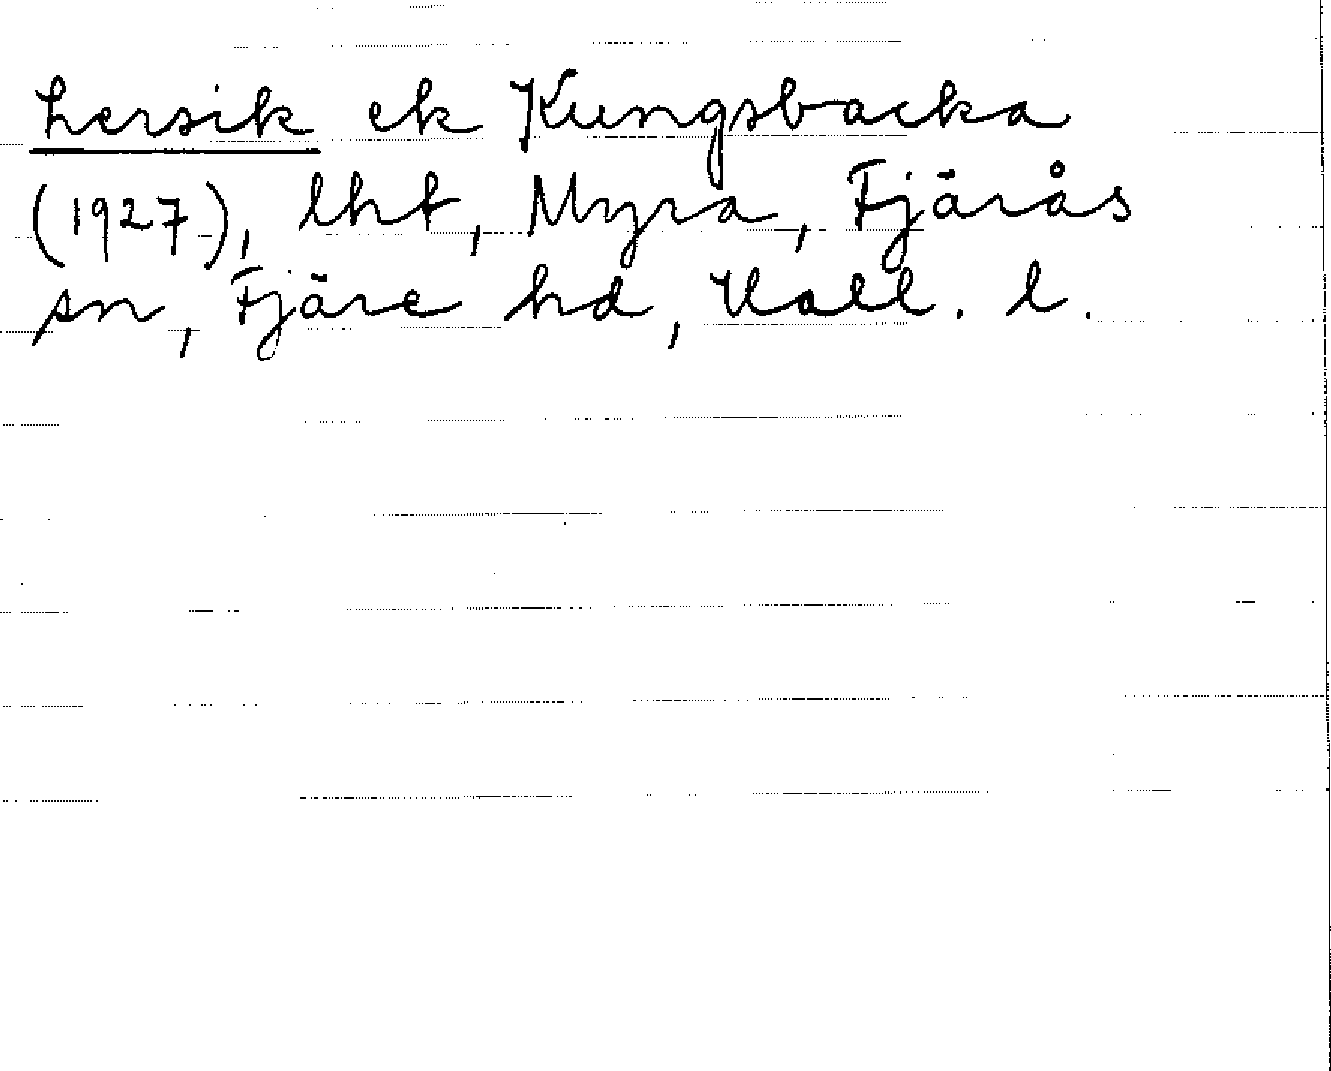 Lersik ek Kungsbacka
(1927), lht, Myra, Fjärås
sn, Fjäre hd, Hall. l.